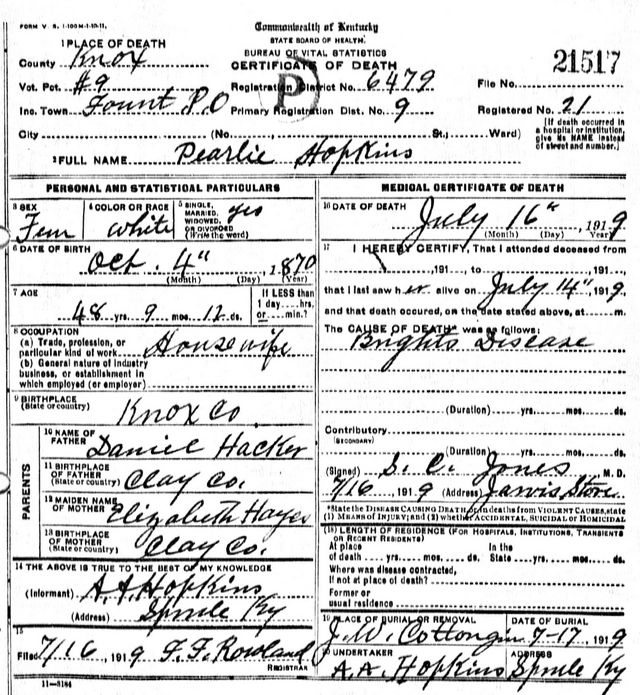 FORM V. S. 1-100M-1-10-11.
Commonwealth of Kentucky
STATE BOARD OF HEALTH.
BUREAU OF VITAL STATISTICS
CERTIFICATE OF DEATH
21517
1 PLACE OF DEATH
County Knox
Vot. Pct. #9 Registration District No. 6479 File No.
P
Inc. Town Fount P.O Primary Registration Dist. No. 9 Registered No. 21
City (No. St., Ward) [If death occurred in a hospital or institution, give its NAME instead of street and number.]
2 FULL NAME Pearlie Hopkins
PERSONAL AND STATISTICAL PARTICULARS
3 SEX Fem
4 COLOR OR RACE White
5 SINGLE, MARRIED, WIDOWED, OR DIVORCED (Write the word) yes
6 DATE OF BIRTH Oct. 4", 1870
(Month) (Day) (Year)
7 AGE 48 yrs. 9 mos. 12 ds.
If LESS than 1 day....hrs. or....min.?
8 OCCUPATION
(a) Trade, profession, or particular kind of work Housewife
(b) General nature of industry business, or establishment in which employed (or employer)
9 BIRTHPLACE (State or country) Knox Co.
PARENTS
10 NAME OF FATHER Daniel Hacker
11 BIRTHPLACE OF FATHER (State or country) Clay Co.
12 MAIDEN NAME OF MOTHER Elizabeth Hayes
13 BIRTHPLACE OF MOTHER (State or country) Clay Co.
14 THE ABOVE IS TRUE TO THE BEST OF MY KNOWLEDGE
(Informant) A. A. Hopkins
(Address) Sprule Ky
15
Filed 7/16, 1919 F. F. Rowland
REGISTRAR
11-3184
MEDICAL CERTIFICATE OF DEATH
16 DATE OF DEATH July 16", 1919
(Month) (Day) (Year)
17 I HEREBY CERTIFY, That I attended deceased from
, 191 , to , 191 ,
that I last saw h er alive on July 14", 1919,
and that death occurred, on the date stated above, at m.
The CAUSE OF DEATH was as follows:
Brights Disease
(Duration) yrs. mos. ds.
Contributory
(SECONDARY)
(Duration) yrs. mos. ds.
(Signed) S. C. Jones M. D.
7/16, 1919 (Address) Jarvis Store
*State the DISEASE CAUSING DEATH, or, in deaths from VIOLENT CAUSES, state
(1) MEANS OF INJURY; and (2) whether ACCIDENTAL, SUICIDAL OR HOMICIDAL
18 LENGTH OF RESIDENCE (FOR HOSPITALS, INSTITUTIONS, TRANSIENTS OR RECENT RESIDENTS)
At place of death yrs. mos. ds. In the State yrs. mos. ds.
Where was disease contracted,
If not at place of death?
Former or
usual residence
19 PLACE OF BURIAL OR REMOVAL J. W. Cottongin
DATE OF BURIAL 7-17, 1919
20 UNDERTAKER A. A. Hopkins
ADDRESS Sprule Ky